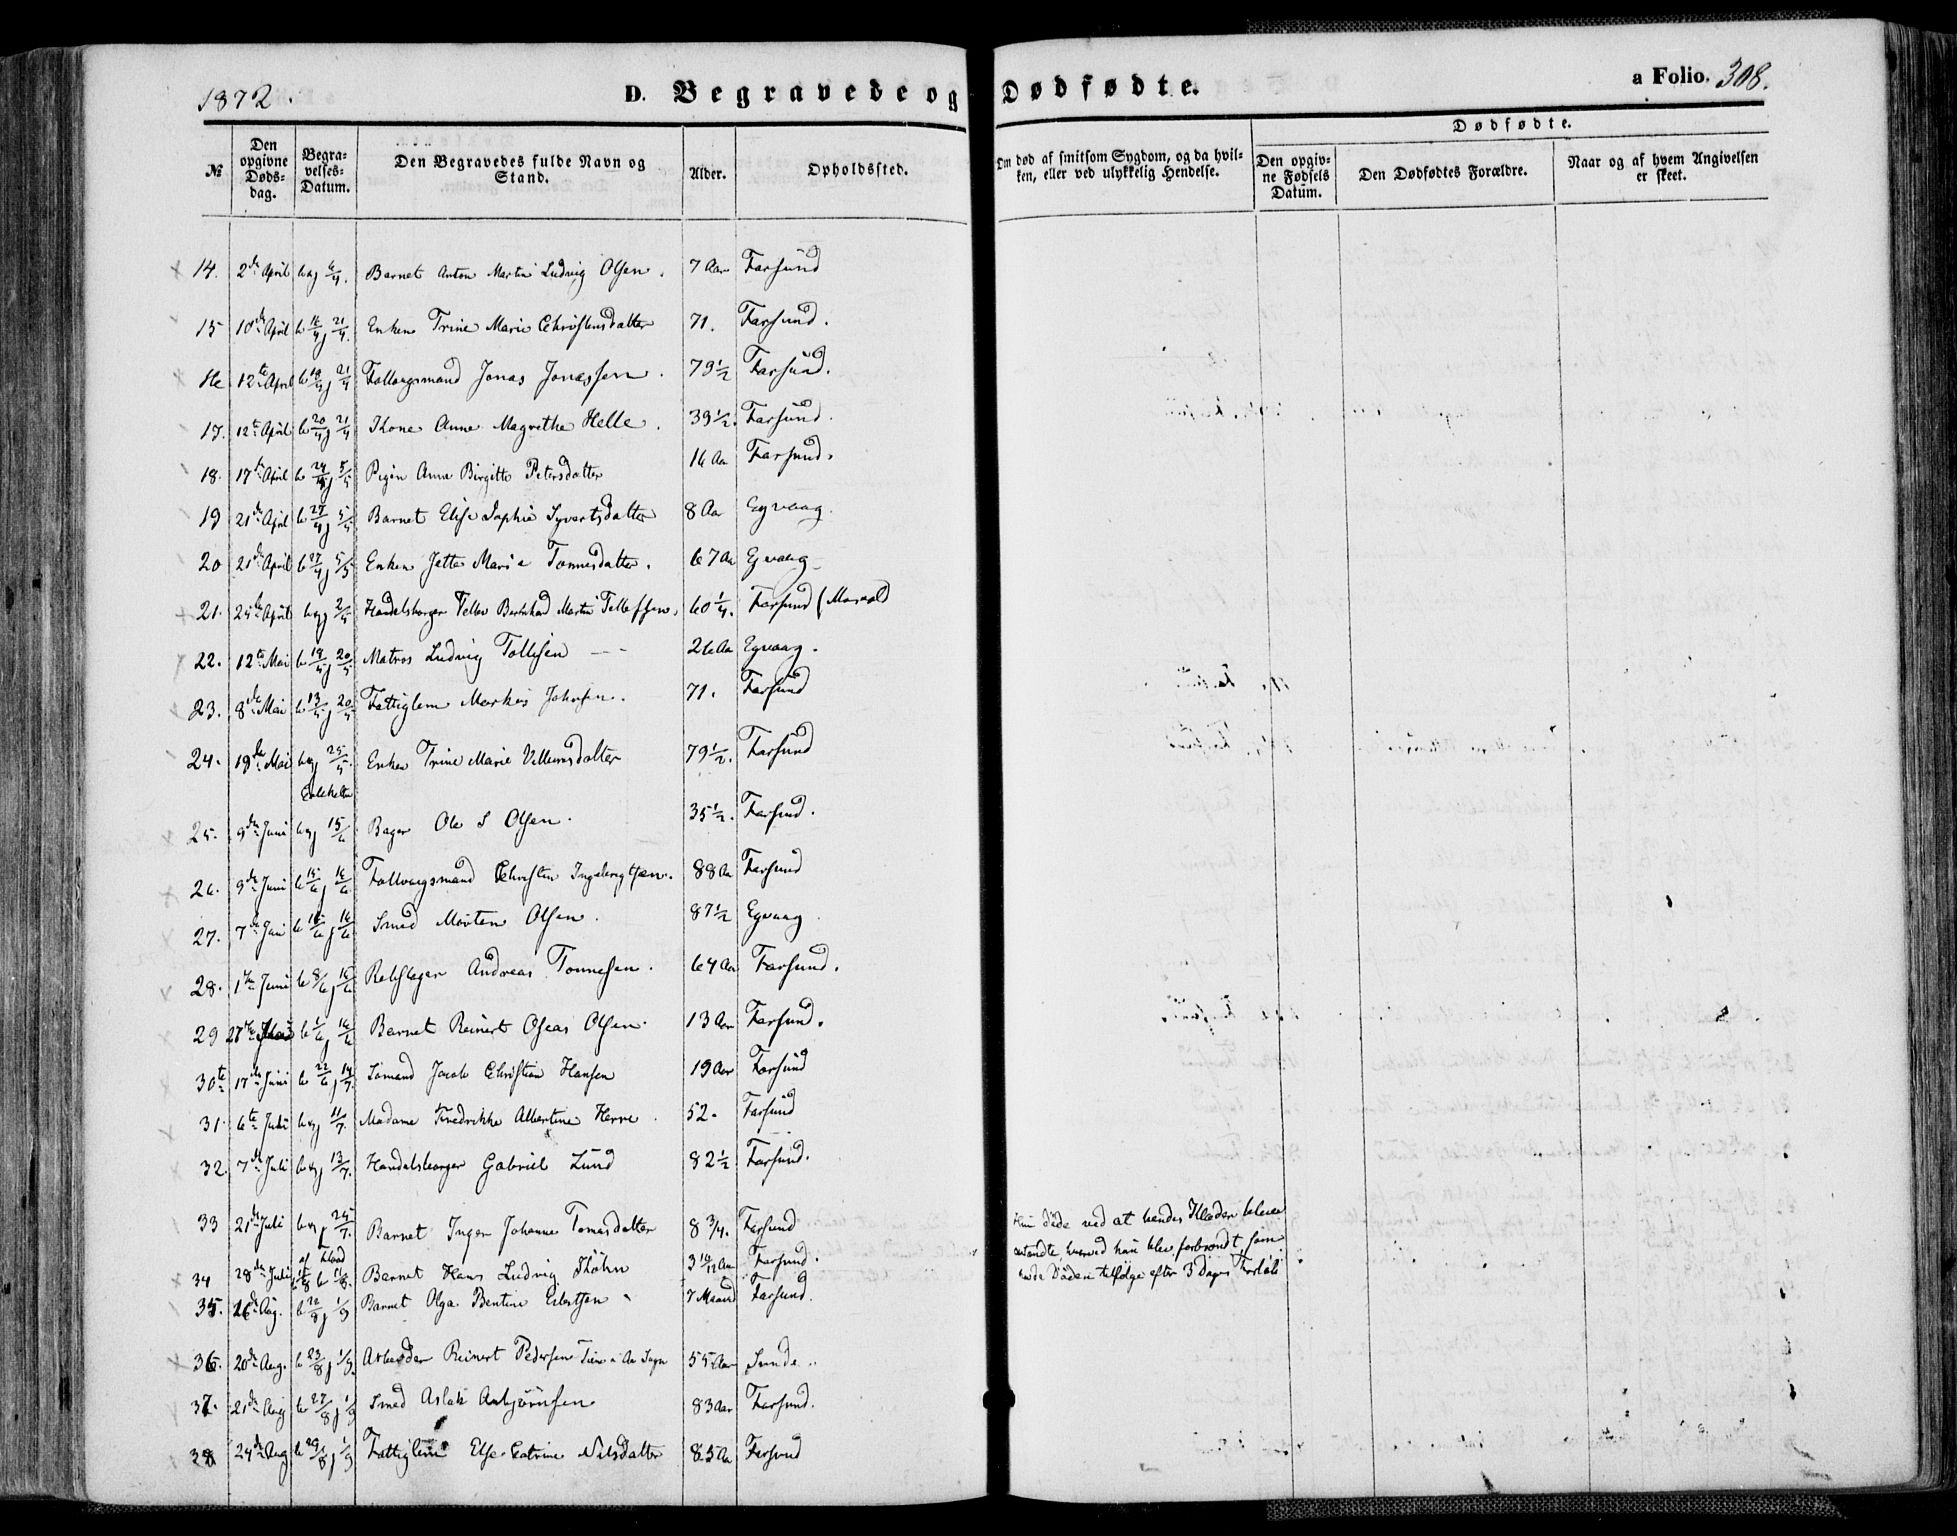 1872.
D. Begravede og Dødfødte.
a Folio. 308.
№
Den opgivne Døds-dag.
Begra-velses-Datum.
Den Begravedes fulde Navn og Stand.
Alder.
Opholdssted.
Om død af smitsom Sygdom, og da hvil-ken, eller ved ulykkelig Hendelse.
Dødfødte.
Den opgiv-ne Fødsels Datum.
Den Dødfødtes Forældre.
Naar og af hvem Angivelsen er skeet.
14. 2de April b og j 6/4. Barnet Anton Martin Ludvig Olsen. 7 Aar Farsund
15 10de April b 16/4 j 21/4. Enken Trine Marie Christensdatter 71. Farsund.
16 12te April b 19/4 j 21/4 Fattigsmand Jonas Jonassen. 79 1/2 Farsund.
17. 12te April b 20/4 j 21/4 Kone Anne Magrethe Helle. 39 1/2. Farsund.
18. 17de April b 24/4 j 5/5 Pigen Anne Birgitte Petersdatter 16 Aa Farsund.
19 21de April b 27/4 j 5/5 Barnet Elise Sophie Syvertsdatter 8 Aa Egvaag.
20 21de April b 27/4 j 5/5 Enken Jette Marie Tonnesdatter. 67 Aa Egvaag
21. 25de April b og j 2/5 Handelsborger Tellev Bernhard Martin Tellefsen. 60 1/4. Farsund
22. 12te Mai b 19/5 j 20/5 Matros Ludvig Tollisen 26 Aa Egvaag.
23. 8de Mai b 13/5 j 20/5 Fattiglem Markus Johnsen. 71. Farsund
24. 19de Mai b og j 25/5. Enken Trine Marie Villumsdatter 79 1/2. Farsund
25. 9de Juni b og j 15/6 Bager Ole S Olsen. 35 1/2. Farsund.
26. 9de Juni b 15/6 j 16/6 Christen Ingebrigtsen. 88 Aa Farsund
27. 7de Juni b 15/6 j 16/6 Smed Morten Olsen. 87 1/2 Egvaag
28. 1ste Juni b 8/6 j 16/6 Rebslager Andreas Tonnesen. 64 Aar Farsund.
29 27de Mai b 1/6 j 16/6 Barnet Reinert Oseas Olsen. 13 Aar Farsund.
30te 17de Juni b 22/6 j 14/7. Sømand Jacob Christian Hansen 19 Aar Farsund
31. 6te Juli b og j 11/7. Madame Fredrikke Albertine Herre. 52. Farsund
32. 7de Juli b og j 13/7. Handelsborger Gabriel Lund 82 1/2 Farsund.
33 21de Juli b og j 25/7. Barnet Inger Johanne Tomasdatter 8 3/4. Farsund Hun døde ved at hendes Klæder bleve
antændte, hvorved hun blev forbrændt, som
havde Døden tilfølge efter 3 Dages Forløb
34 28de Juli b 11/8. Barnet Hans Ludvig Køhn 3 10/12 Aa Farsund.
35. 16de Aug. b 22/8 j 1/9 Barnet Olga Bentine Eilertsen 7 Maaned Farsund.
36. 20de Aug. b 23/8 j 1/9. Arbeider Reinert Pedersen 55 Aar Sunde.
37. 21de Aug b 27/8 j 1/9 Smed Aslak Anbjørnsen 83 Aar Farsund.
38 24de Aug b 29/8 j 1/9 Fattiglem Else Catrine Nilsdatter 85 Aa Farsund